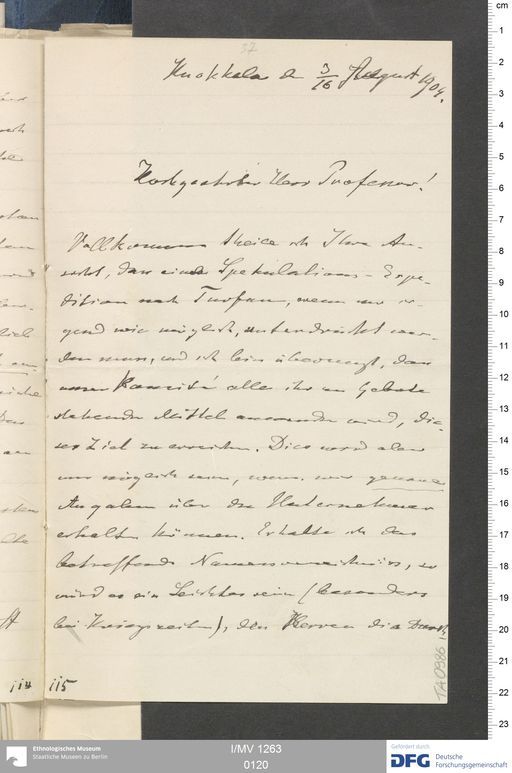 37
Kuokkala d. 3/16 August 1904.
Hochgeehrter Herr Professor!
Vollkommen theile ich Ihre An-
sicht, dass eine Spekulations-Expe-
dition nach Turfan, wenn nur ir-
gend wie möglich, unterdrückt wer-
den muss, und ich bin überzeugt, dass
unser Komité alle ihr zu Gebote
stehende Mittel anwenden wird, die-
ses Ziel zu erreichen. Dies wird aber
nur möglich sein, wenn wir genaue
Angaben über den Unternehmer
erhalten können. Erhalte ich das
betreffende Namensverzeichniss, so
wird es ein Leichtes sein (besonders
bei Kriegszeiten), den Herren die Durch-
114 115
TA 0986
I/MV 1263
0120
Ethnologisches Museum
Staatliche Museen zu Berlin
Gefördert durch
DFG Deutsche
Forschungsgemeinschaft
cm
1
2
3
4
5
6
7
8
9
10
11
12
13
14
15
16
17
18
19
20
21
22
23